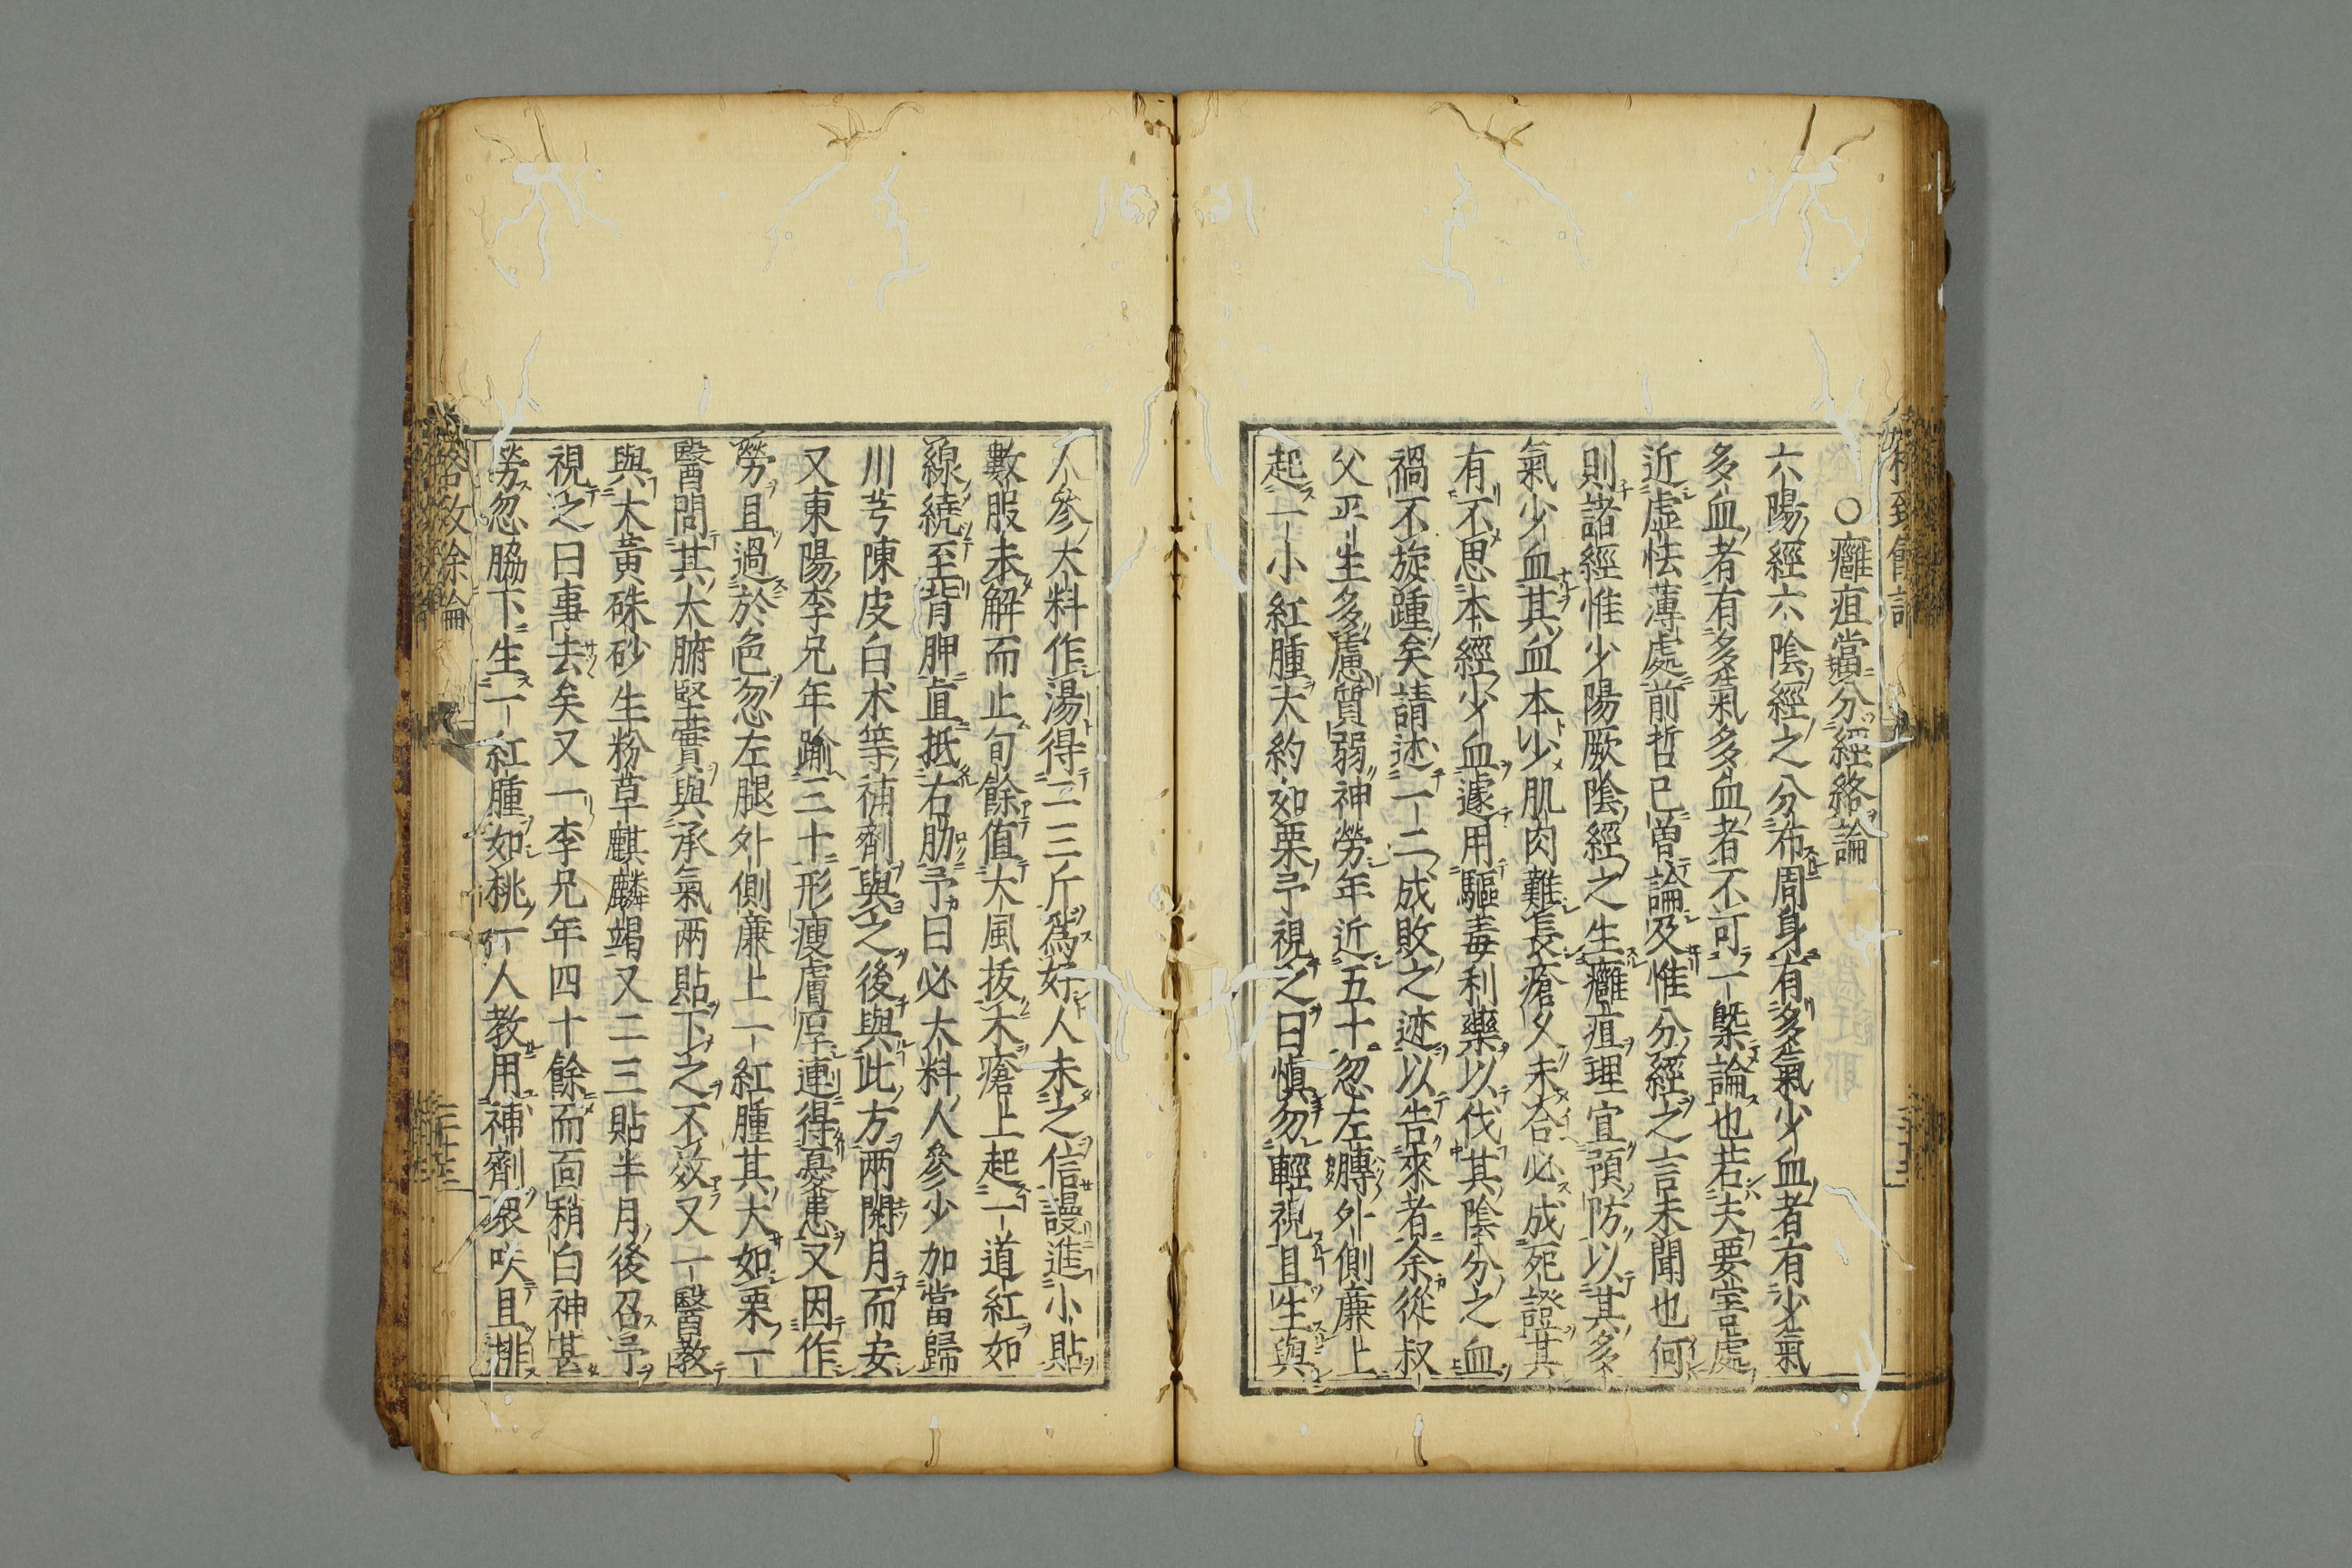 ○癰疽當分經絡論
六陽經六陰經之分布周身有多氣少血者有少氣
多血者有多氣多血者不可一槩論也若夫要害處
近虛怯薄處前哲已曽論及惟分經之言未聞也何
則諸經惟少陽厥陰經之生癰疽理宜預防以其多
氣少血其血本少肌肉難長瘡久未合必成死證其
有不思本經少血遽用驅毒利藥以伐其陰分之血
禍不旋踵矣請述一二成敗之迹以告來者余從叔
父平生多慮質弱神勞年近五十忽左膊外側廉上
起一小紅腫大約如栗予視之曰慎勿輕視且生與
人參大料作湯得二三斤爲好人未之信謾進小貼
數服未解而止旬餘值大風拔木瘡上起一道紅如
線繞至背胛直抵右肋予曰必大料人參少加當歸
川芎陳皮白术等補劑與之後與此方兩閱月而安
又東陽李兄年踰三十形瘦膚厚連得憂患又因作
勞且過於色忽左腿外側廉上一紅腫其大如栗一
醫問其大腑堅實與承氣两貼下之不效又一醫教
與大黃硃砂生粉草麒麟竭又二三貼半月後召予
視之曰事去矣又一李兄年四十餘而面稍白神甚
勞忽脇下生一紅腫如桃一人教用補劑衆咲且排
格致餘論